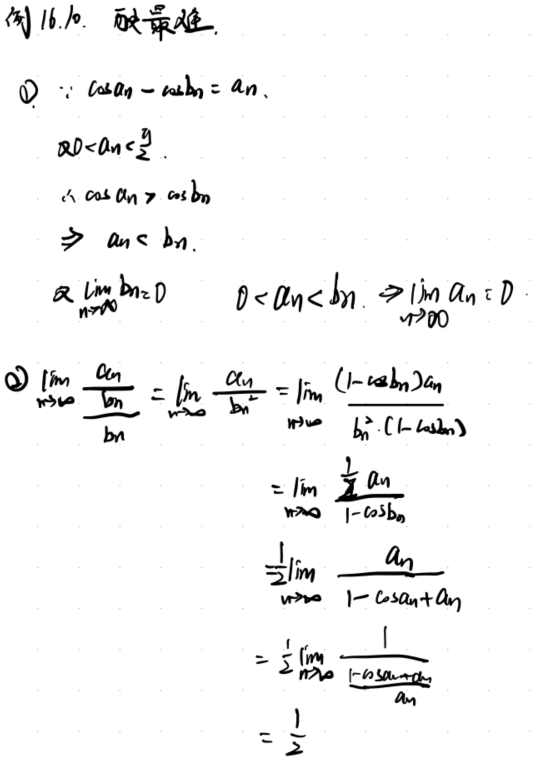 例16.10. 酸最难.
① ∵ cosan - cosbn = an.
又0<an<π/2.
∴ cosan > cosbn
⇒ an < bn.
又 lim n→∞ bn=0  0<an<bn. ⇒ lim n→∞ an=0
② lim n→∞ (an/bn)/bn = lim n→∞ an/bn² = lim n→∞ (1-cosbn)an / bn²·(1-cosbn)
= lim n→∞ ½an / 1-cosbn
= ½ lim n→∞ an / 1-cosan+an
= ½ lim n→∞ 1 / ((1-cosan+an)/an)
= ½